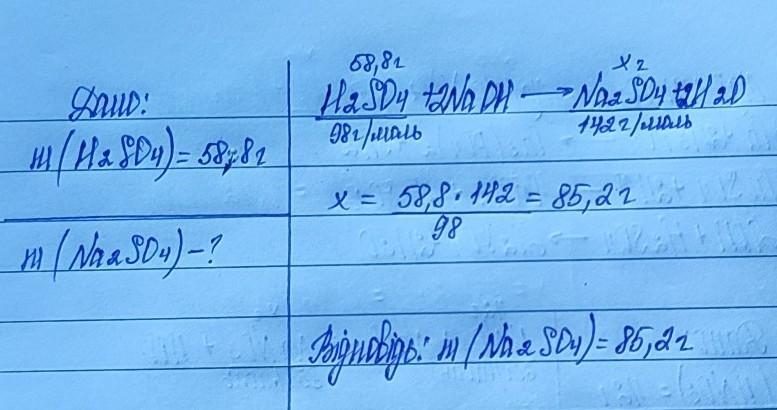 Дано:
m(H2SO4)=58,8г
m(Na2SO4)-?
58,8г x г
H2SO4 +2NaOH → Na2SO4+2H2O
98г/моль 142г/моль
x = 58,8·142 = 85,2г
98
Відповідь: m(Na2SO4)=85,2г